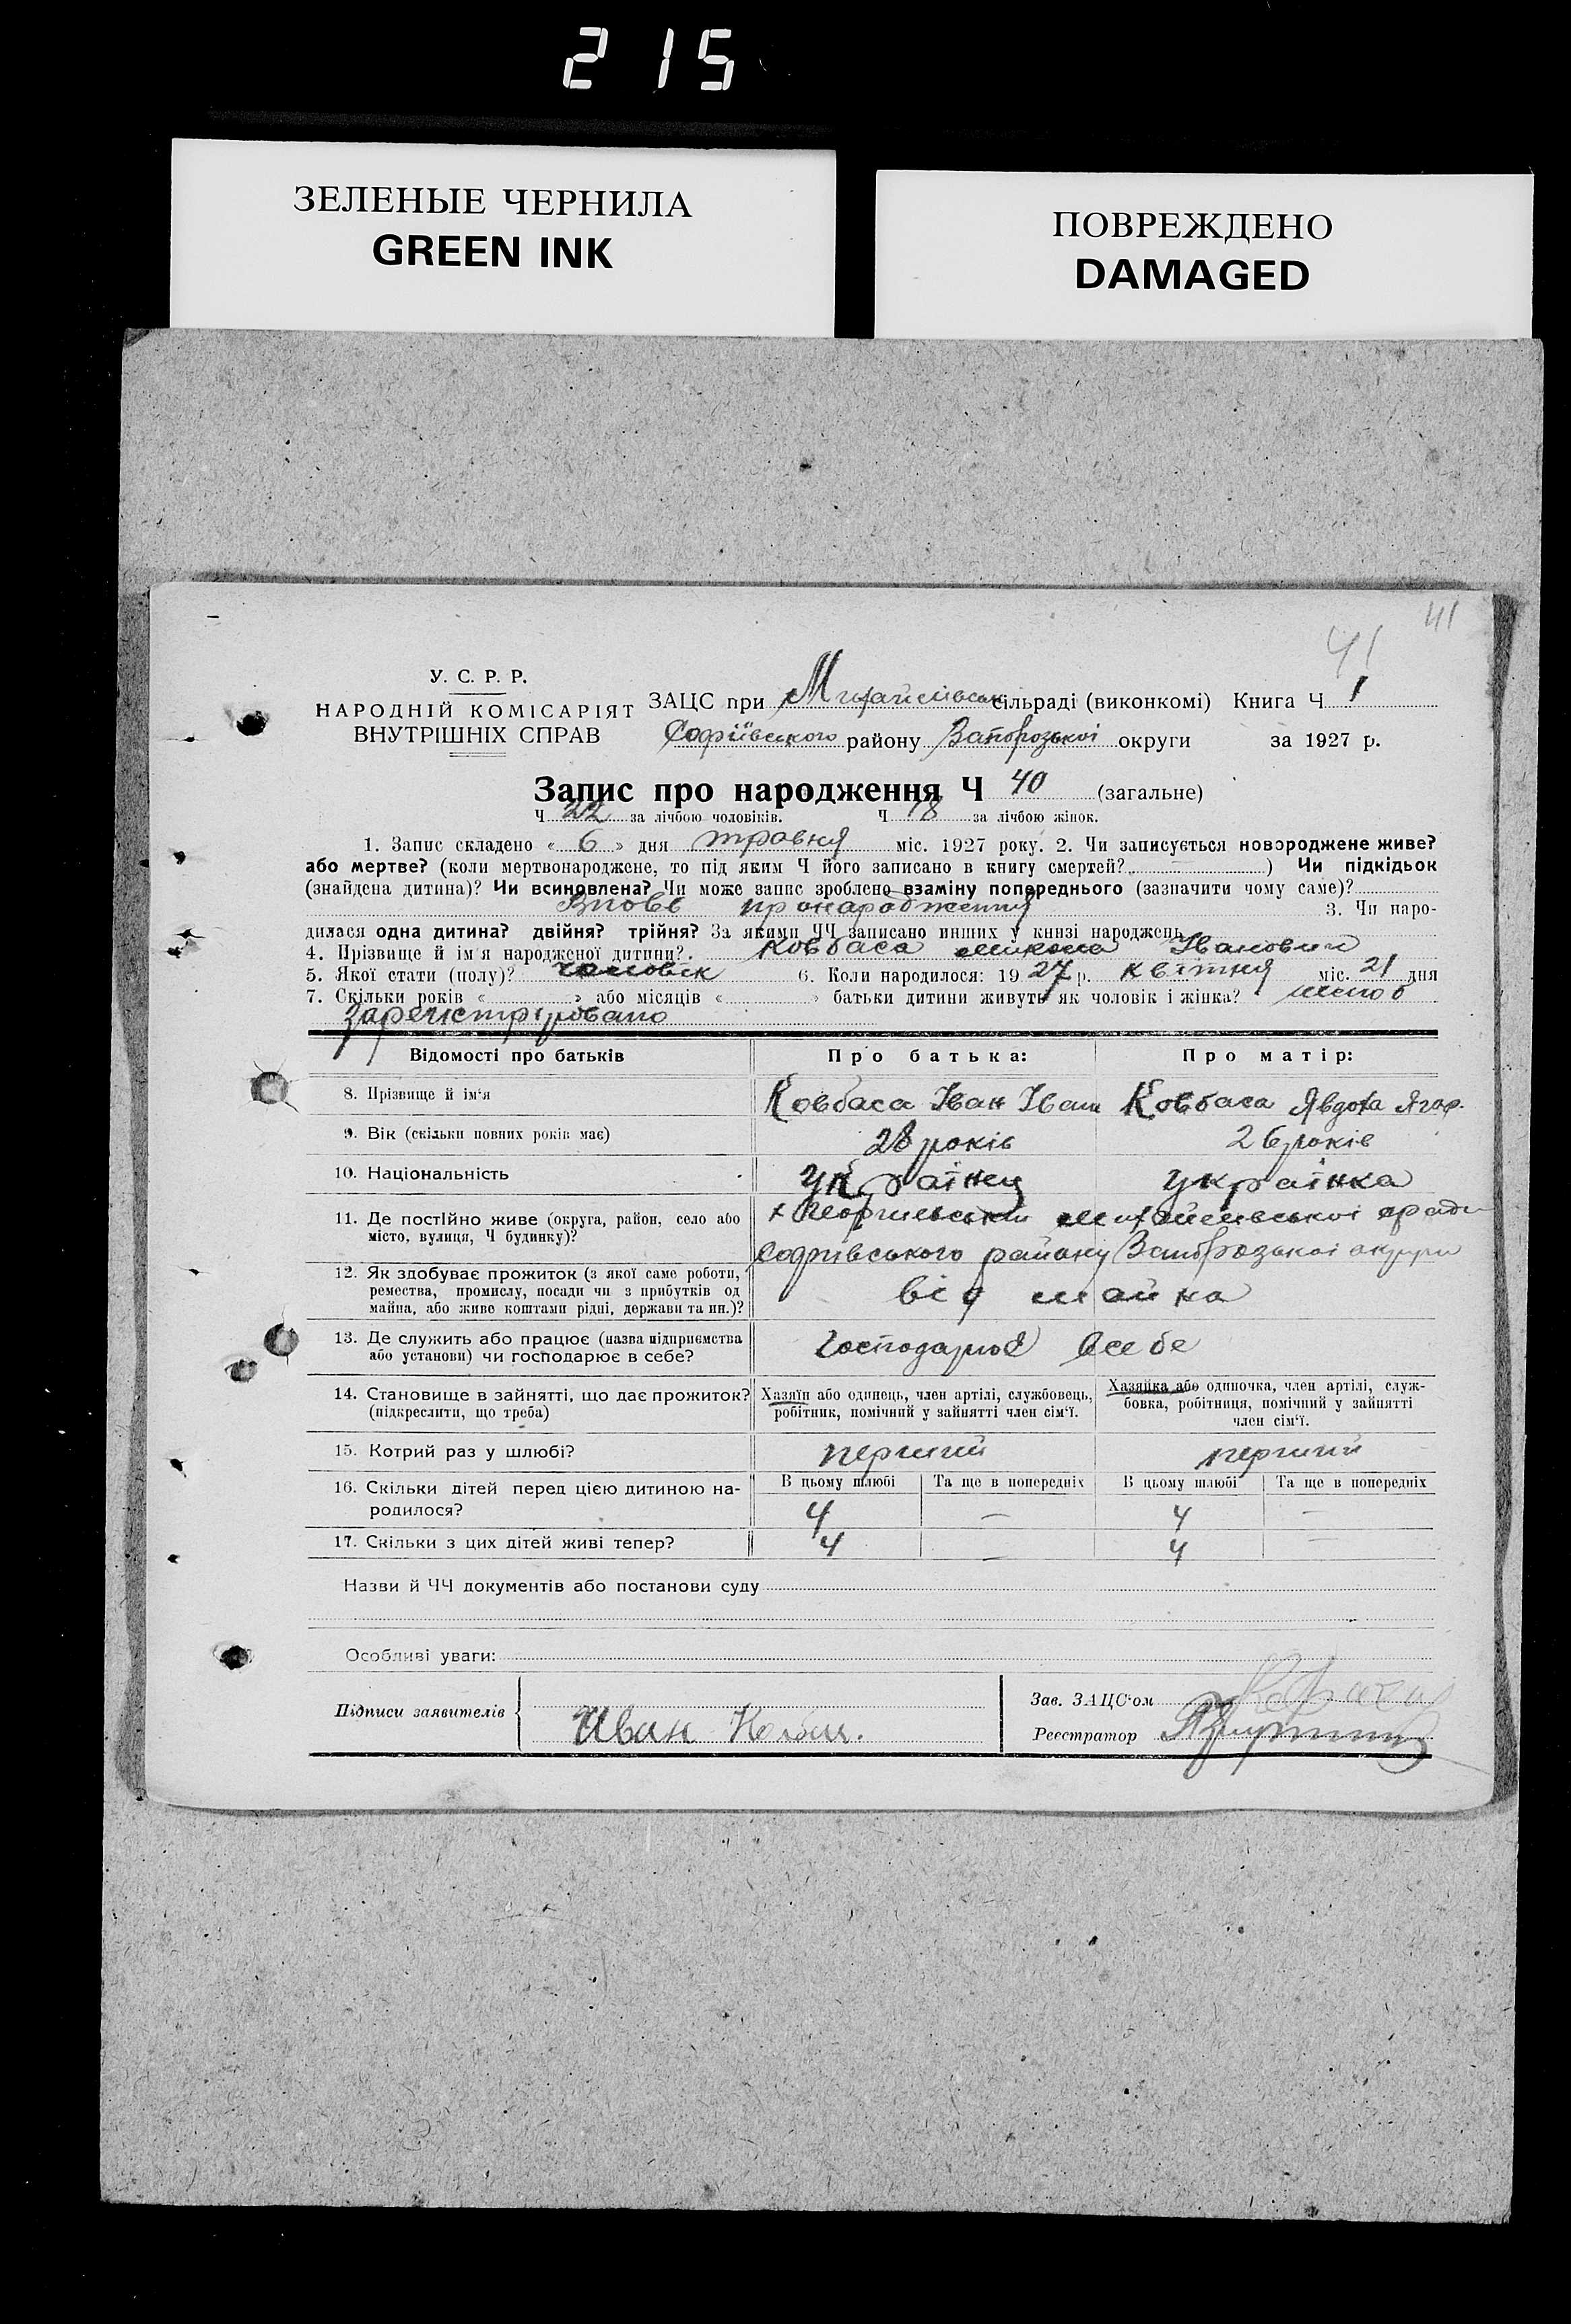 215
ЗЕЛЕНЫЕ ЧЕРНИЛА
GREEN INK
ПОВРЕЖДЕНО
DAMAGED
41
41
У. С. Р. Р.
НАРОДНІЙ КОМІСАРІЯТ
ВНУТРІШНІХ СПРАВ
ЗАЦС при Михайлівськ сільраді (виконкомі) Книга Ч 1
Софіївського району Запорозької округи за 1927 р.
Запис про народження Ч 40 (загальне)
Ч 22 за лічбою чоловіків. Ч 18 за лічбою жінок.
1. Запис складено « 6 » дня травня міс. 1927 року. 2. Чи записується новороджене живе?
або мертве? (коли мертвонароджене, то під яким Ч його записано в книгу смертей? ) Чи підкідьок
(знайдена дитина)? Чи всиновлена? Чи може запис зроблено взаміну попереднього (зазначити чому саме)?
Вновь про народження 3. Чи наро-
дилася одна дитина? двійня? трійня? За якими ЧЧ записано инших у книзі народжень
4. Прізвище й ім'я народженої дитини? Ковбаса Микола Іванович
5. Якої стати (полу)? чоловік 6. Коли народилося: 1927 р. квітня міс. 21 дня
7. Скільки років « » або місяців « » батьки дитини живуть як чоловік і жінка? шлюб
зарегистріровано
Відомості про батьків Про батька: Про матір:
8. Прізвище й ім'я Ковбаса Іван Іван Ковбаса Явдоха Ягор.
9. Вік (скільки повних років має) 28 років 26 років
10. Національність Українец українка
11. Де постійно живе (округа, район, село або
місто, вулиця, Ч будинку)?
х Михайлівської сради
Софиівського району Запорозької округи
12. Як здобуває прожиток (з якої саме роботи,
ремества, промислу, посади чи з прибутків од
майна, або живе коштами рідні, держави та ин.)?
від майна
13. Де служить або працює (назва підприємства
або установи) чи господарює в себе?
Господарює всебе
14. Становище в зайнятті, що дає прожиток?
(підкреслити, що треба)
Хазяїн або одинець, член артілі, службовець,
робітник, помічний у зайнятті член сім'ї.
Хазяйка або одиночка, член артілі, служ-
бовка, робітниця, помічний у зайнятті
член сім'ї.
15. Котрий раз у шлюбі? перший перший
16. Скільки дітей перед цією дитиною на-
родилося?
В цьому шлюбі Та ще в попередніх В цьому шлюбі Та ще в попередніх
4 — 4 —
17. Скільки з цих дітей живі тепер? 4 — 4 —
Назви й ЧЧ документів або постанови суду
Особливі уваги:
Підписи заявителів
Иван
Зав. ЗАЦС'ом
Реєстратор